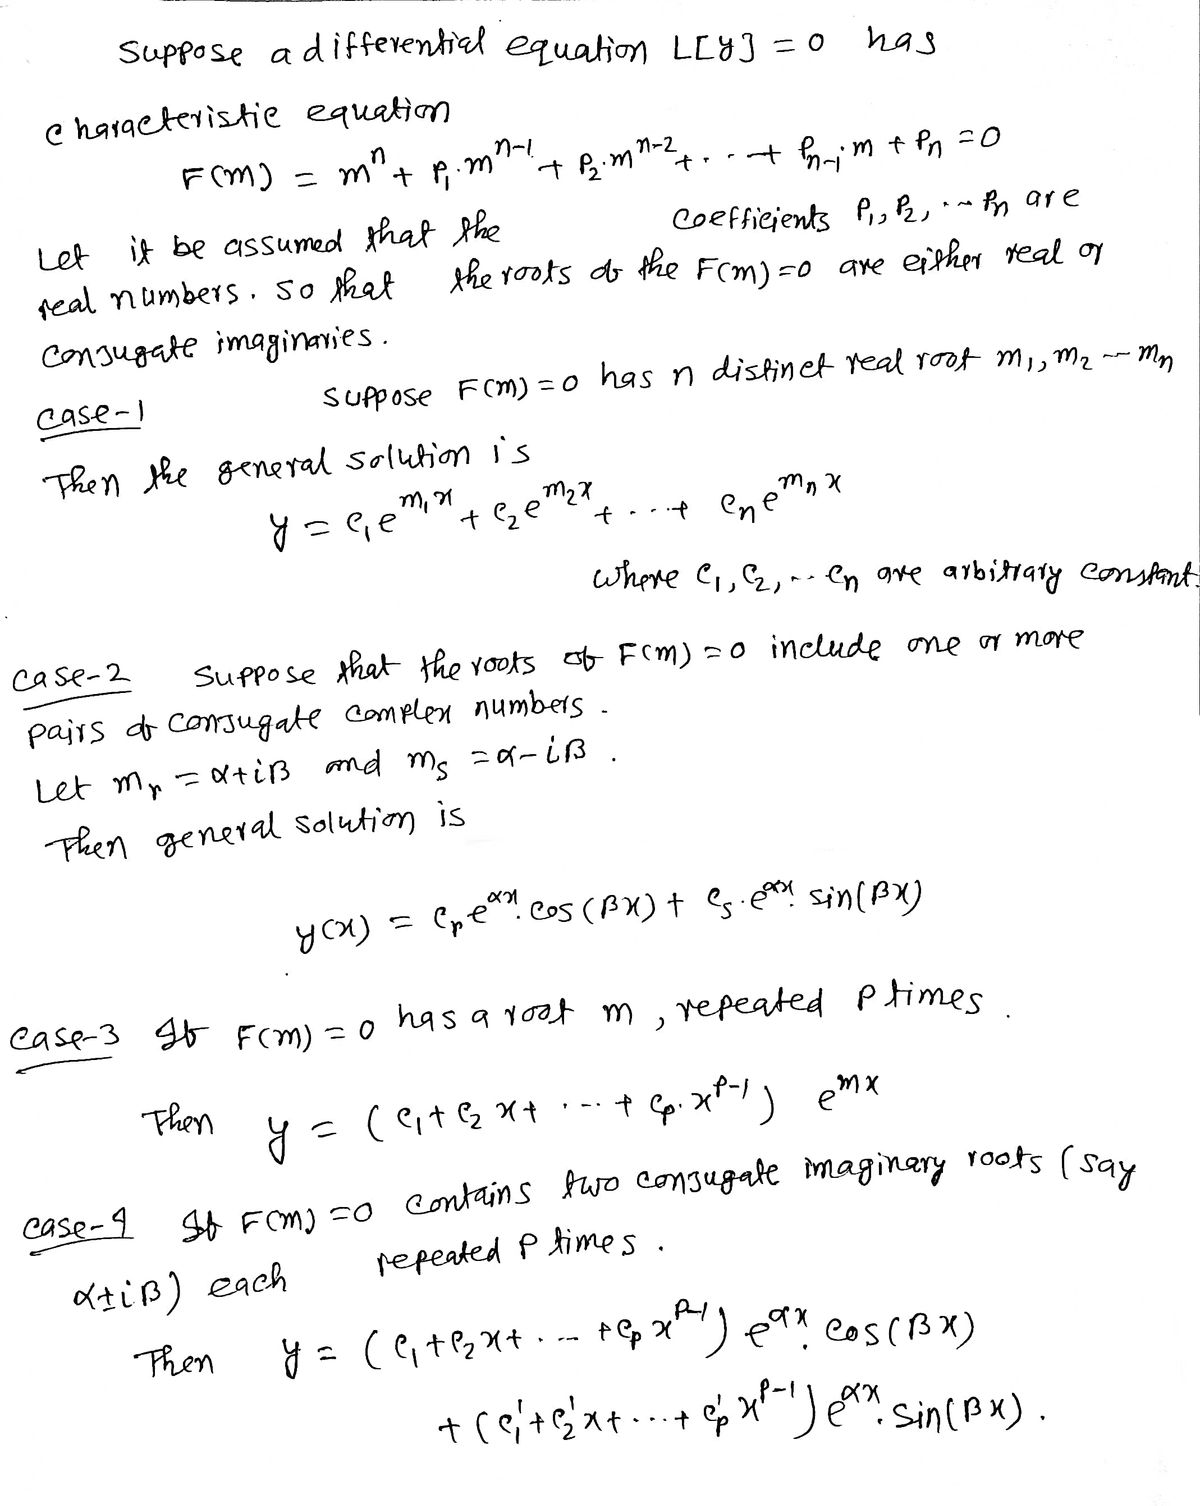 Suppose a differential equation L[y] = 0 has
characteristic equation
F(m) = mⁿ + P₁·mⁿ⁻¹ + P₂·mⁿ⁻² + ... + Pₙ₋₁·m + Pₙ = 0
Let it be assumed that the coefficients P₁, P₂, ... Pₙ are
real numbers. So that the roots of the F(m) = 0 are either real or
conjugate imaginaries.
Case-1 Suppose F(m) = 0 has n distinct real root m₁, m₂ --- mₙ
Then the general solution is
y = c₁e^{m₁x} + c₂e^{m₂x} + ... + cₙe^{mₙx}
where c₁, c₂, ... cₙ are arbitrary constant.
Case-2 Suppose that the roots of F(m) = 0 include one or more
pairs of conjugate complex numbers.
Let mᵣ = α+iβ and mₛ = α-iβ.
Then general solution is
y(x) = cᵣe^{αx}·cos(βx) + cₛ·e^{αx}·sin(βx)
Case-3 If F(m) = 0 has a root m, repeated P times.
Then y = (c₁ + c₂x + ... + cₚ·x^{P-1}) e^{mx}
Case-4 If F(m) = 0 contains two conjugate imaginary roots (say
α±iβ) each repeated P times.
Then y = (c₁ + c₂x + ... + cₚx^{P-1}) e^{αx}·cos(βx)
+ (c₁' + c₂'x + ... + cₚ'x^{P-1}) e^{αx}·sin(βx).